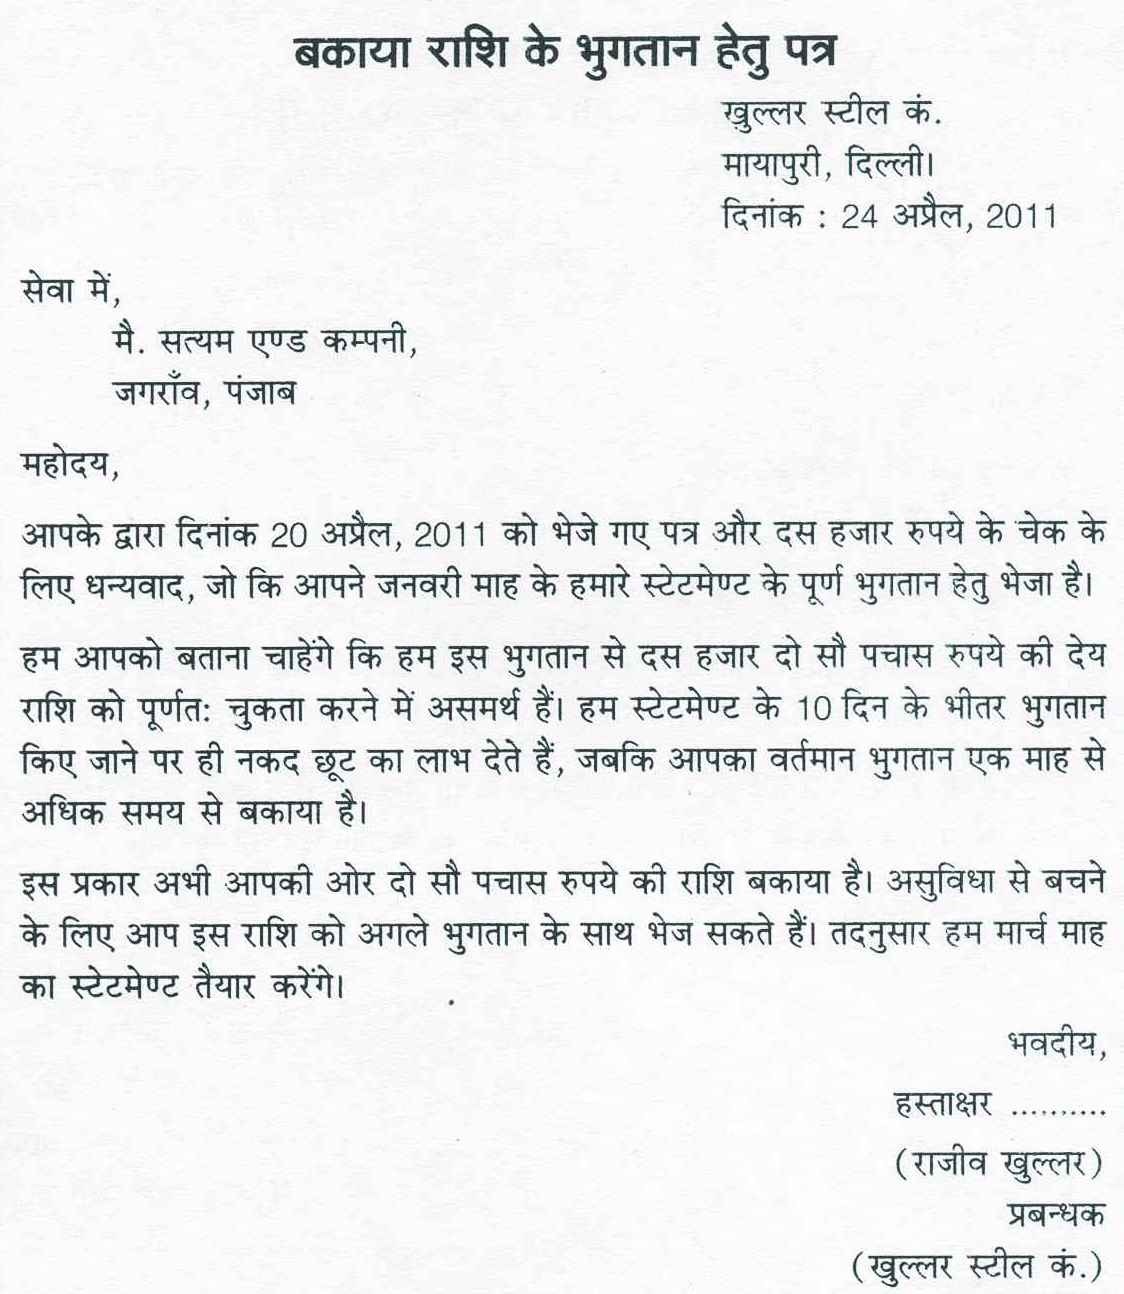 बकाया राशि के भुगतान हेतु पत्र
खुल्लर स्टील कं.
मायापुरी, दिल्ली।
दिनांक : 24 अप्रैल, 2011
सेवा में,
मै. सत्यम एण्ड कम्पनी,
जगराँव, पंजाब
महोदय,
आपके द्वारा दिनांक 20 अप्रैल, 2011 को भेजे गए पत्र और दस हजार रुपये के चेक के
लिए धन्यवाद, जो कि आपने जनवरी माह के हमारे स्टेटमेण्ट के पूर्ण भुगतान हेतु भेजा है।
हम आपको बताना चाहेंगे कि हम इस भुगतान से दस हजार दो सौ पचास रुपये की देय
राशि को पूर्णतः चुकता करने में असमर्थ हैं। हम स्टेटमेण्ट के 10 दिन के भीतर भुगतान
किए जाने पर ही नकद छूट का लाभ देते हैं, जबकि आपका वर्तमान भुगतान एक माह से
अधिक समय से बकाया है।
इस प्रकार अभी आपकी ओर दो सौ पचास रुपये की राशि बकाया है। असुविधा से बचने
के लिए आप इस राशि को अगले भुगतान के साथ भेज सकते हैं। तदनुसार हम मार्च माह
का स्टेटमेण्ट तैयार करेंगे।
भवदीय,
हस्ताक्षर ..........
(राजीव खुल्लर)
प्रबन्धक
(खुल्लर स्टील कं.)